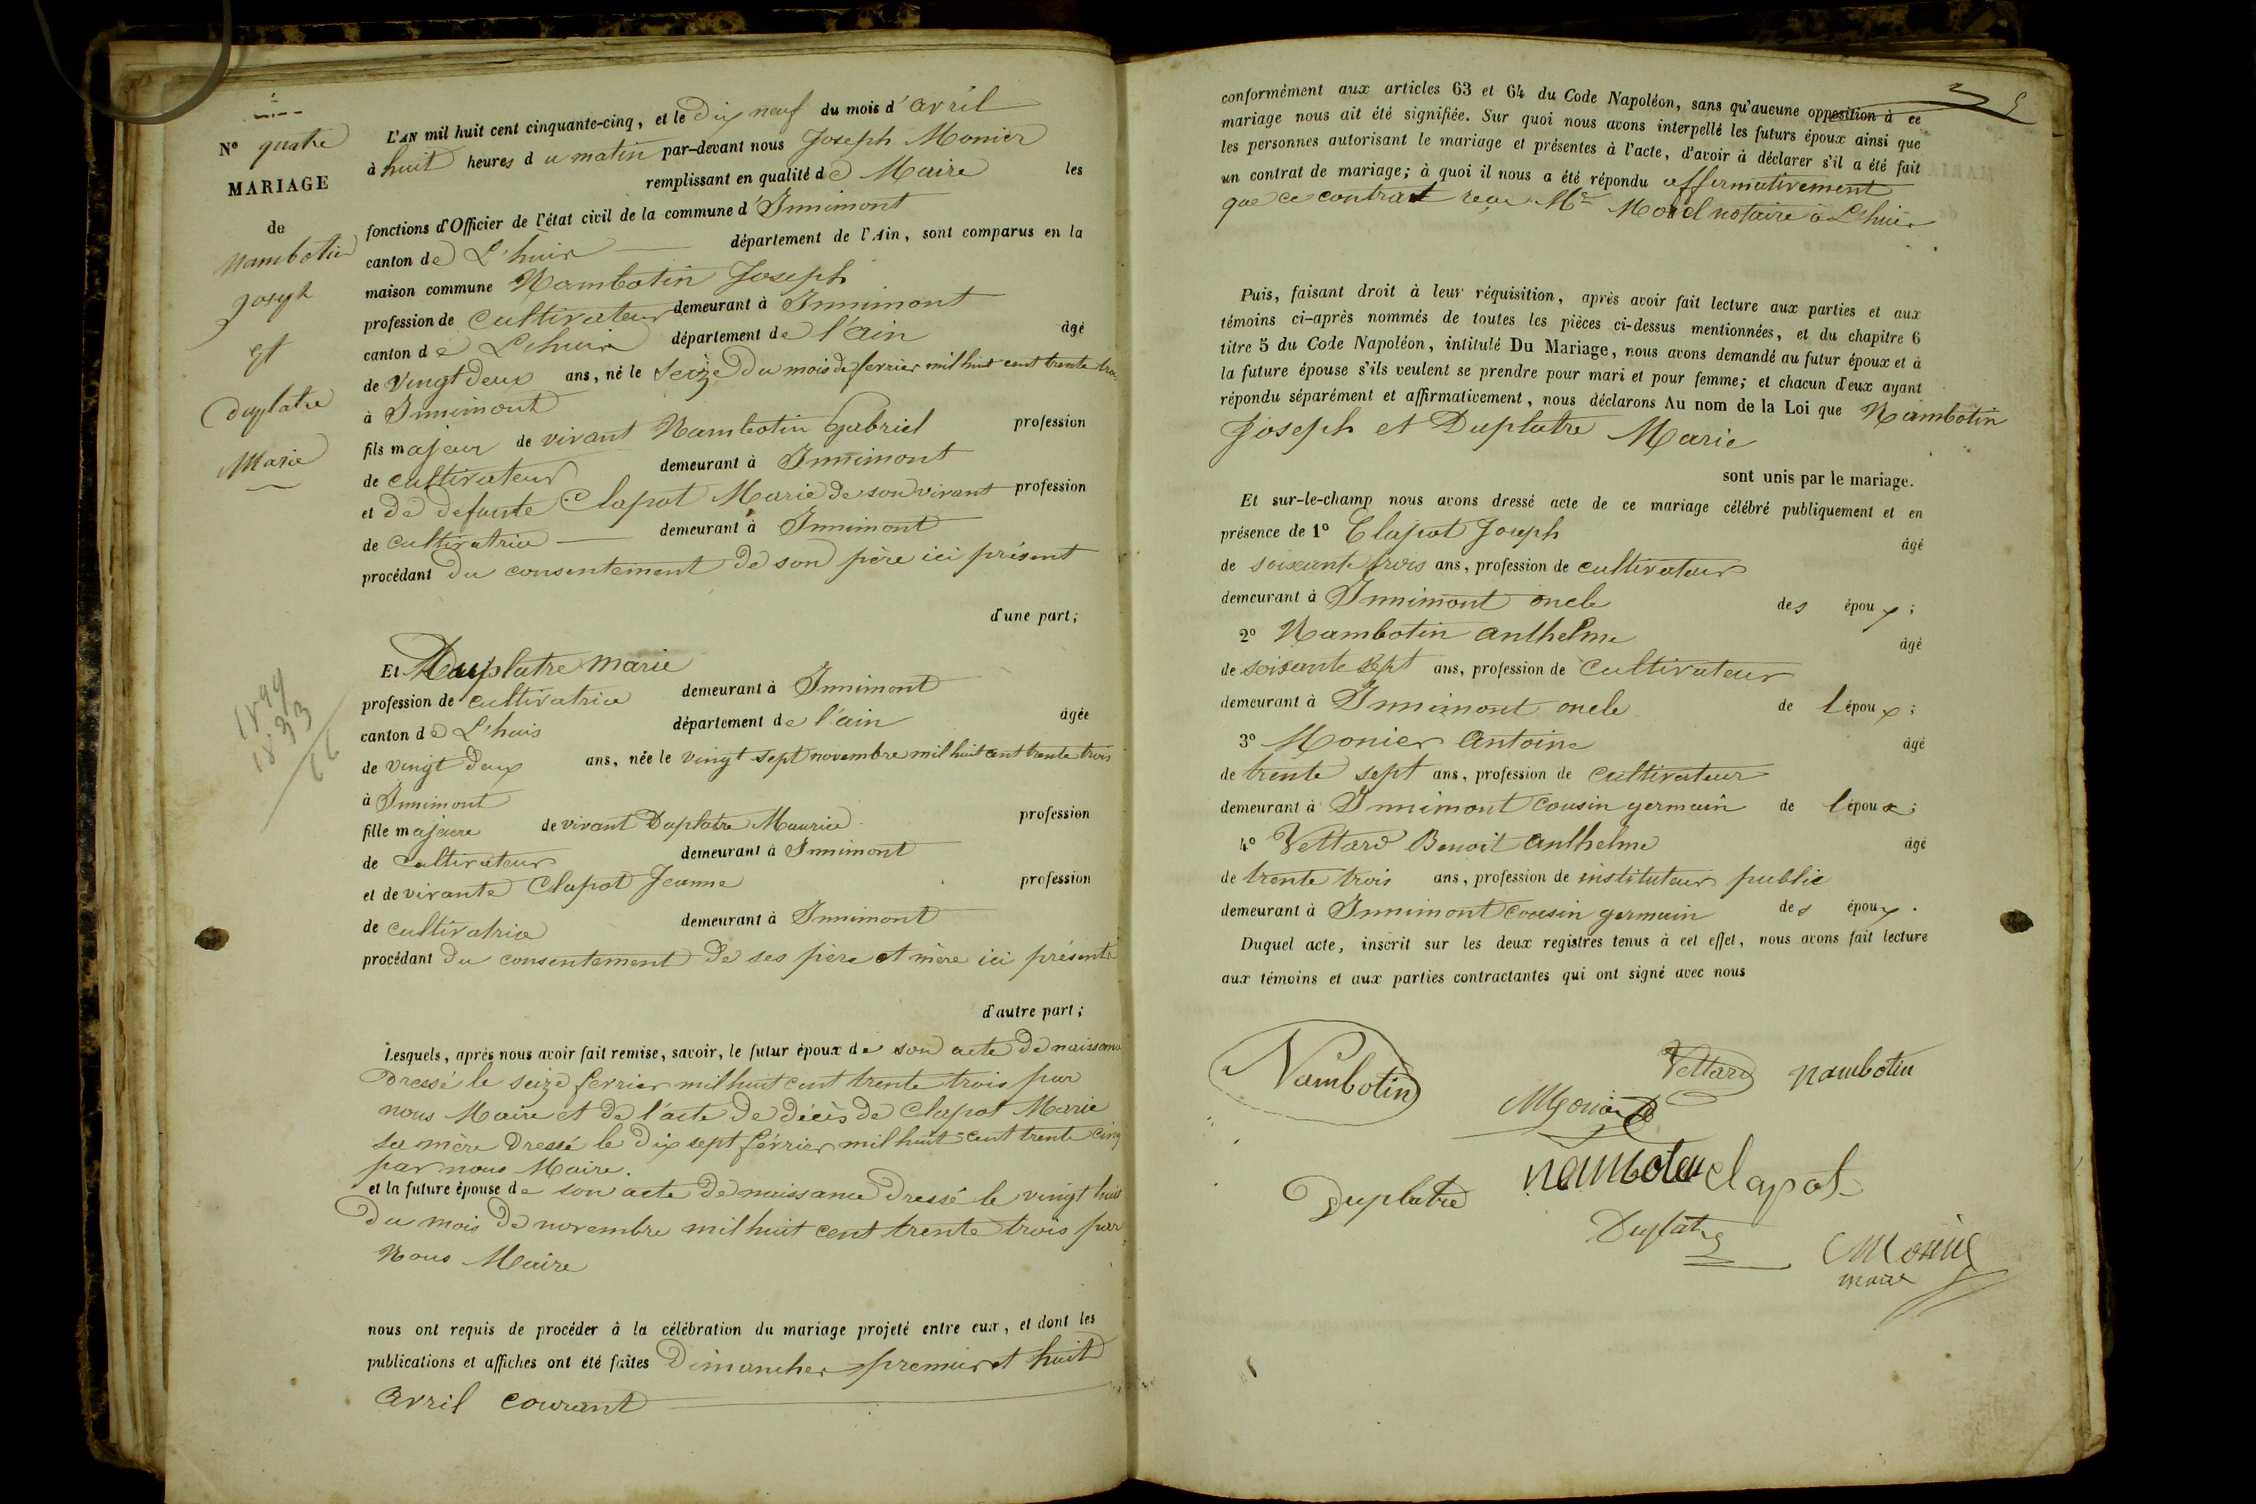 N° quatre
MARIAGE
de
Nambotin
Joseph
et
Duplatre
Marie
1899
1833
66
L'AN mil huit cent cinquante-cinq, et le Dix neuf du mois d'avril
à huit heures du matin par-devant nous Joseph Monier
remplissant en qualité de Maire les
fonctions d'Officier de l'état civil de la commune d'Innimont
canton de L'huis département de l'Ain, sont comparus en la
maison commune Nambotin Joseph
profession de cultivateur demeurant à Innimont
canton de Lhuis département de l'ain âgé
de vingt deux ans, né le seize du mois de fevrier mil huit cent trente trois
à Innimont
fils majeur de vivant Nambotin Gabriel profession
de cultivateur demeurant à Innimont
et de defunte Clapot Marie de son vivant profession
de cultivatrice demeurant à Innimont
procédant du consentement de son père ici présent
d'une part;
Et Duplatre marie
profession de cultivatrice demeurant à Innimont
canton de L'huis département de l'ain âgée
de vingt deux ans, née le vingt sept novembre mil huit cent trente trois
à Innimont
fille majeure de vivant Duplatre Maurice profession
de cultivateur demeurant à Innimont
et de vivante Clapot Jeanne profession
de cultivatrice demeurant à Innimont
procédant du consentement de ses père et mère ici présents
d'autre part;
Lesquels, après nous avoir fait remise, savoir, le futur époux de son acte de naissance
Dressé le seize fevrier mil huit cent trente trois par
nous Maire et de l'acte de décès de Clapot Marie
sa mère Dressé le dix sept février mil huit cent trente cinq
par nous Maire.
et la future épouse de son acte de naissance Dressé le vingt huit
du mois de novembre mil huit cent trente trois par
Nous Maire
nous ont requis de procéder à la célébration du mariage projeté entre eux, et dont les
publications et affiches ont été faites Dimanches premier et huit
avril courant
conformément aux articles 63 et 64 du Code Napoléon, sans qu'aucune opposition à ce
mariage nous ait été signifiée. Sur quoi nous avons interpellé les futurs époux ainsi que
les personnes autorisant le mariage et présentes à l'acte, d'avoir à déclarer s'il a été fait
un contrat de mariage; à quoi il nous a été répondu affirmativement
que ce contrat reçu Me Morel notaire à Lhuis
Puis, faisant droit à leur réquisition, après avoir fait lecture aux parties et aux
témoins ci-après nommés de toutes les pièces ci-dessus mentionnées, et du chapitre 6
titre 5 du Code Napoléon, intitulé Du Mariage, nous avons demandé au futur époux et à
la future épouse s'ils veulent se prendre pour mari et pour femme; et chacun d'eux ayant
répondu séparément et affirmativement, nous déclarons Au nom de la Loi que Nambotin
Joseph et Duplatre Marie
sont unis par le mariage.
Et sur-le-champ nous avons dressé acte de ce mariage célébré publiquement et en
présence de 1° Clapot Joseph âgé
de soixante trois ans, profession de cultivateur
demeurant à Innimont oncle des époux;
2° Nambotin anthelme âgé
de soixante sept ans, profession de cultivateur
demeurant à Innimont oncle de l'époux;
3° Monier Antoine âgé
de trente sept ans, profession de cultivateur
demeurant à Innimont cousin germain de l'époux;
4° Vettard Benoit anthelme âgé
de trente trois ans, profession de instituteur public
demeurant à Innimont cousin germain des époux.
Duquel acte, inscrit sur les deux registres tenus à cet effet, nous avons fait lecture
aux témoins et aux parties contractantes qui ont signé avec nous
Nambotin
Vettard
nambotin
Monier
nambotin
clapot
Duplatre
Duplatre
Monier
maire